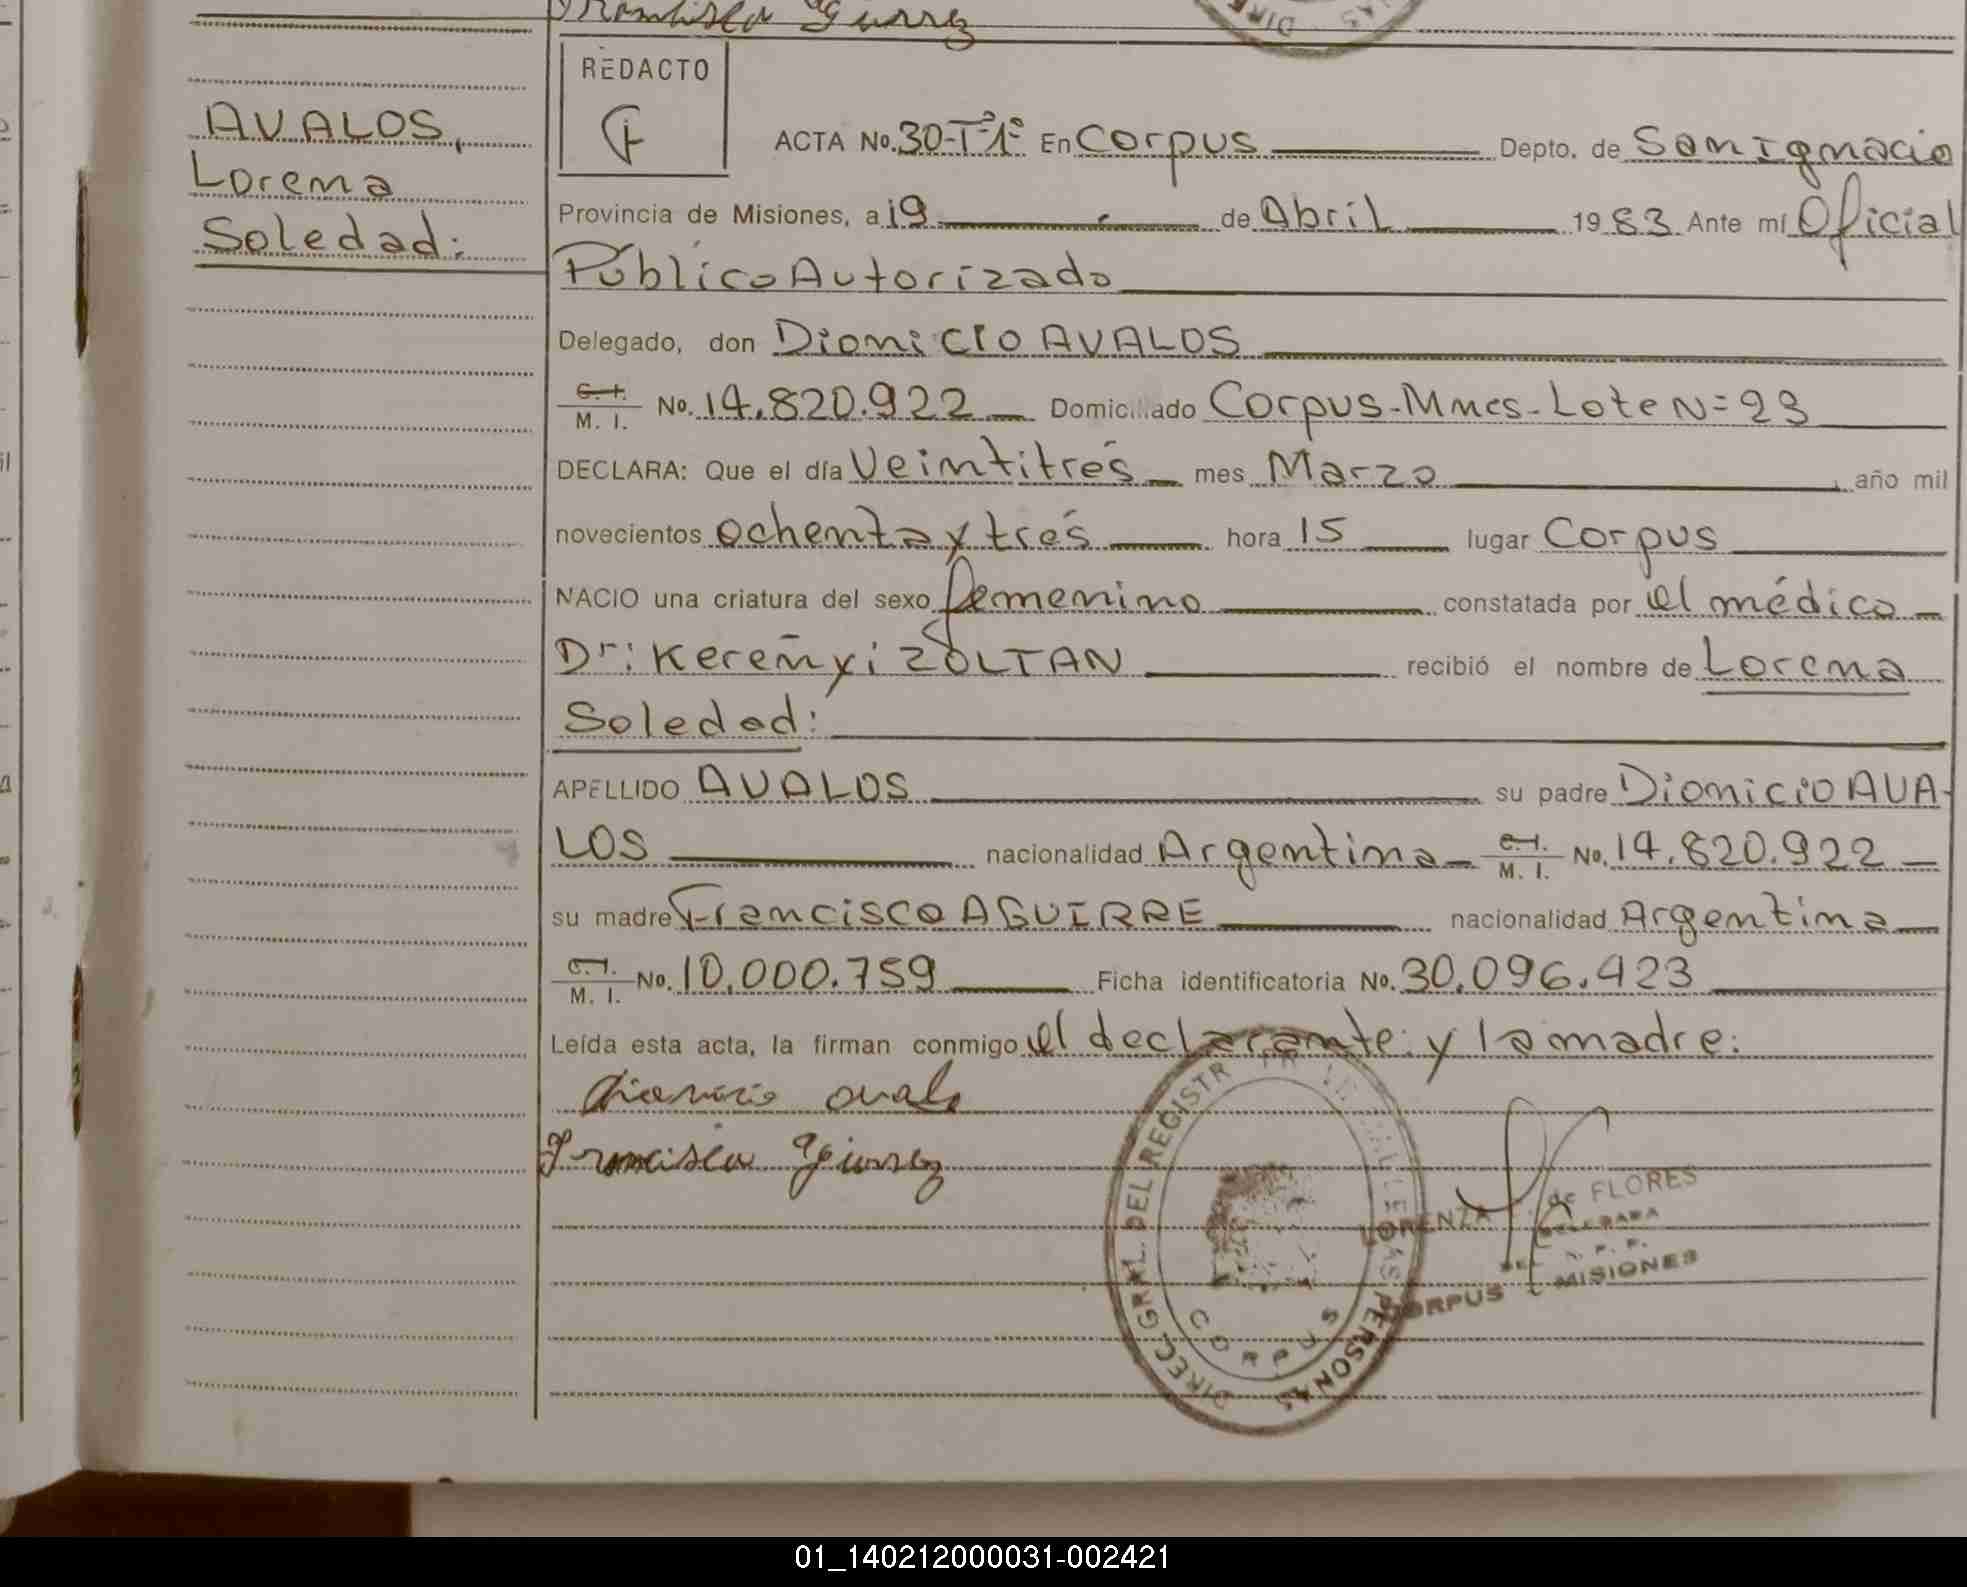 REDACTO
AVALOS,
Lorena
Soledad:
ACTA No. 30-Tº1º En Corpus Depto. de San Ignacio
Provincia de Misiones, a 19 de Abril 1983 Ante mí Oficial
Público Autorizado
Delegado, don Dionicio AVALOS
C.I. M. I. No. 14.820.922 Domiciliado Corpus-Mnes-Lote N=23
DECLARA: Que el día Veintitrés mes Marzo, año mil
novecientos ochenta y trés hora 15 lugar Corpus
NACIO una criatura del sexo femenino constatada por el médico
Dr: Kereñyi ZOLTAN recibió el nombre de Lorena
Soledad:
APELLIDO AVALOS su padre Dionicio AVA-
LOS nacionalidad Argentina C.I. M. I. No. 14.820.922
su madre Francisca AGUIRRE nacionalidad Argentina
C.I. M. I. No. 10.000.759 Ficha identificatoria No. 30.096.423
Leída esta acta, la firman conmigo el declarante: y la madre:
DIREC. GRAL. DEL REGISTR PERSONAS
CORPUS
LORENZA de FLORES
CORPUS MISIONES
01_140212000031-002421